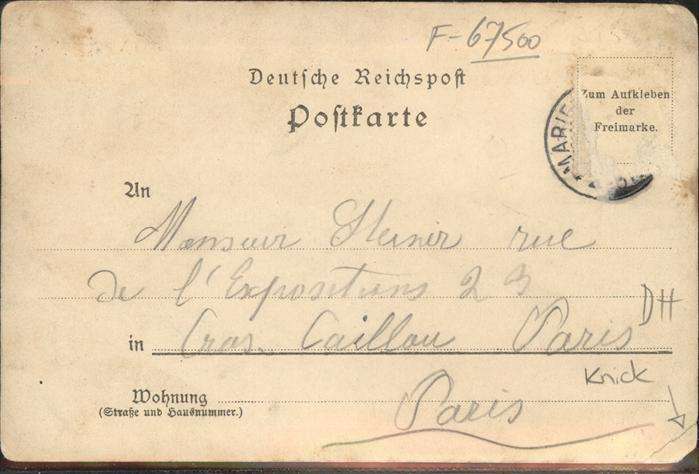 F-67500
Deutsche Reichspost
Postkarte
Zum Aufkleben
der
Freimarke.
MARIE
An
Monsieur Steiner rue
de l'Expositions 23
DH
in Gros Caillou Paris
Knick
Wohnung
(Straße und Hausnummer.)
Paris